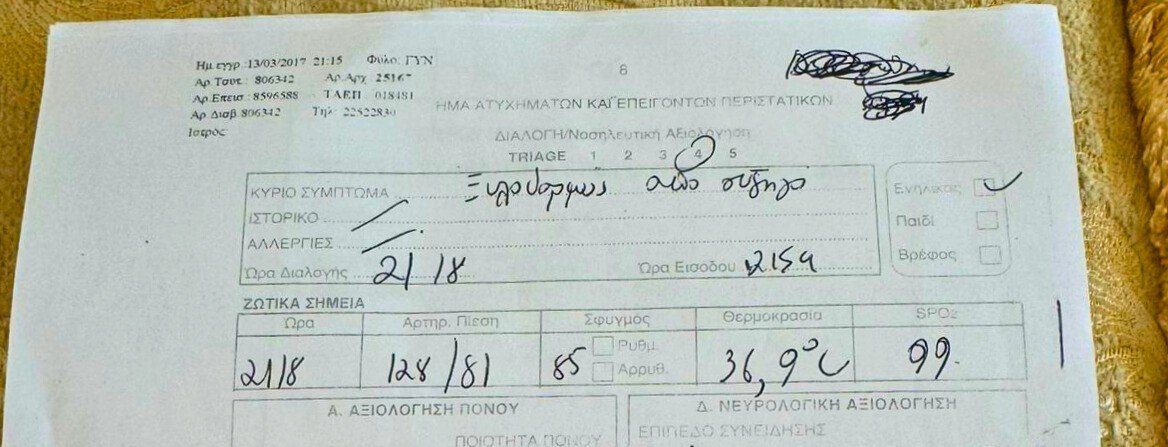 Ημ.εγγρ :13/03/2017 21:15 Φύλο. ΓΥΝ
Αρ.Ταυτ.: 806342 Αρ.Αρχ. 25167
Αρ.Επεισ : 8596588 ΤΑΕΠ : 018481
Αρ Διαβ 806342 Τηλ 22522830
Ιατρός:
8
ΗΜΑ ΑΤΥΧΗΜΑΤΩΝ ΚΑΙ ΕΠΕΙΓΟΝΤΩΝ ΠΕΡΙΣΤΑΤΙΚΩΝ
ΔΙΑΛΟΓΗ/Νοσηλευτική Αξιολόγηση
TRIAGE 1 2 3 4 5
ΚΥΡΙΟ ΣΥΜΠΤΩΜΑ Ξυλοδαρμός από σύζηγο
ΙΣΤΟΡΙΚΟ
ΑΛΛΕΡΓΙΕΣ
Ώρα Διαλογής 21 18 Ώρα Εισόδου 2159
Ενήλικας
Παιδί
Βρέφος
ΖΩΤΙΚΑ ΣΗΜΕΙΑ
Ώρα Αρτηρ. Πίεση Σφυγμός Θερμοκρασία SPO2
2118 128/81 85 Ρυθμ. Αρρυθ. 36,9°C 99.
Α. ΑΞΙΟΛΟΓΗΣΗ ΠΟΝΟΥ Δ. ΝΕΥΡΟΛΟΓΙΚΗ ΑΞΙΟΛΟΓΗΣΗ
ΠΟΙΟΤΗΤΑ ΠΟΝΟΥ ΕΠΙΠΕΔΟ ΣΥΝΕΙΔΗΣΗΣ